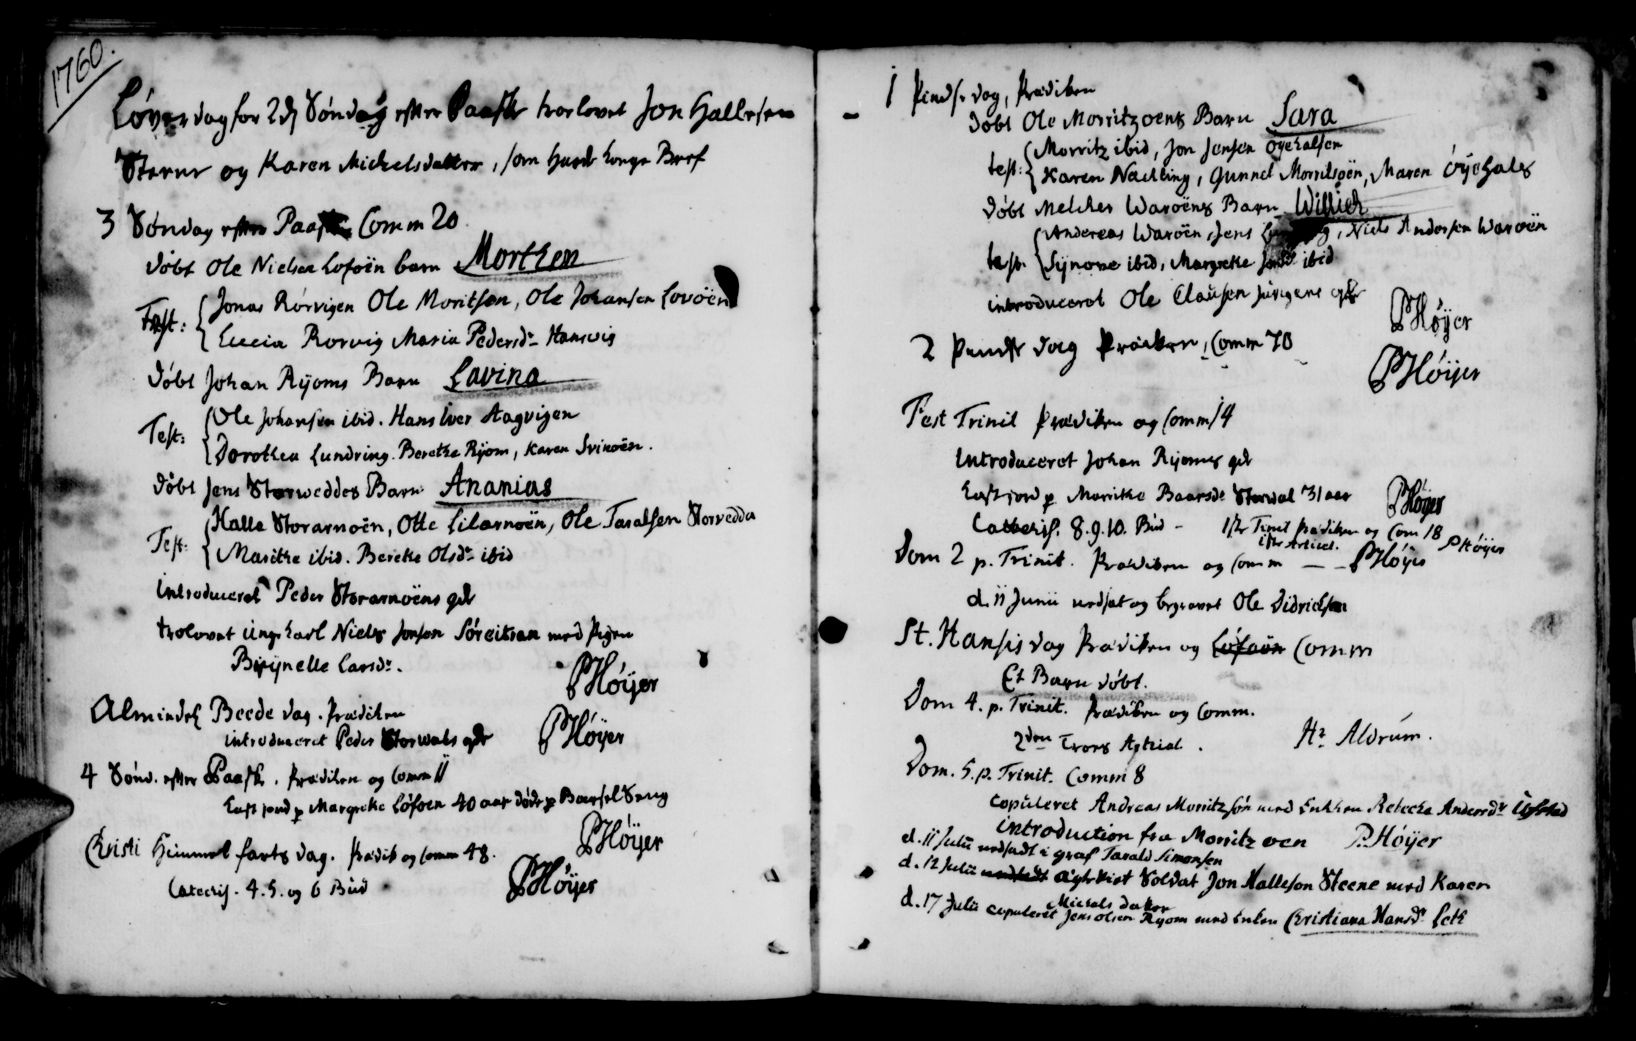 1760.
Løverdag for 2d Søndag efter Paaske trolovet Jon Hallesen
Steene og Karen Michelsdatter, som hafde Konge Bref
3 Søndag efter Paaske Comm 20
døbt Ole Nielsen Lofoën barn Morthen
Test: Jonas Rørvigen Ole Moritsøn, Ole Johansen Lovöen
Lucia Rorvig Maria Pedersdr Hansvig
døbt Johan Ryoms Barn Lavina
Test: Ole Johansen ibid. Hans Iver Aagvigen
Dorothea Lundring. Berethe Ryom, Karen Svinöen.
døbt Jens Storweddes Barn Ananias
Test: Halle Storarnoën, Otte Lilarnoën, Ole Taralsen Storvedda
Marithe ibid. Berethe Olsdr ibid
Introduceret Peder Storarnoëns qde
trolovet Ungekarl Niels Jonsøn Söreitran med Pigen
Birynelle Larsdr.
PHöyer
Almindel Beede dag. Prædiken
introduceret Peder Storwals qde PHöyer
4 Sönd. efter Paaske. Prædiken og Comm 11
Kast jord p Margrethe Löfoen 40 aar döde p Barsel Seng
PHöyer
Christi Himmel farts dag. Prædik og Comm 48.
Catechis. 4. 5. og 6 Bud
PHöyer
1 Pindse dag, Prædiken
døbt Ole Morritzoens Barn Sara
test: Morritz ibid, Jon Jensen Öyehalsen
Karen Nachling, Gunnel Morritsöen, Maren Öyehals
døbt Melcher Waroëns Barn Willich
test. Andereas Waröen, Jens, Niels Andersen Waroën
Synove ibid, Margrethe ibid
introduceret Ole Clausen qde
PHöyer
2 Pindse dag Prædiken, Comm 70
PHöyer
Fest Trinit Prædiken og Comm 14
Introduceret Johan Ryomes qde
Kast jord p Marrithe Baarsde Storwal 31 aar PHöyer
Catechis. 8. 9. 10. Bud - 1ste Trinit Prædiken og Com 18
1ste Articel. PHöyer
Dom 2 p. Trinit. Prædiken og Comm — PHöyer
d. 11 Junii nedsat og begravet Ole Didrichsen
St. Hansis dag Prædiken og Lofoën Comm
Et Barn døbt.
Dom 4. p. Trinit. Prædiken og Comm.
2den Troes Articel. Hr Aldrum.
Dom. 5. p. Trinit. Comm 8
Copuleret Andreas Moritzsön med Enkken Rebecka Andersdr
introduction fra Moritz oen P. Höyer
d. 11 Julii nedsadt i graf Tarald Simonsen
d. 12 Julii nedsadt Soldat Jon Halleson Steene med Karen
Michels datter
d. 17 Julii Copuleret Jens Olsen Ryom med Enken Christiana Hansdr Leth